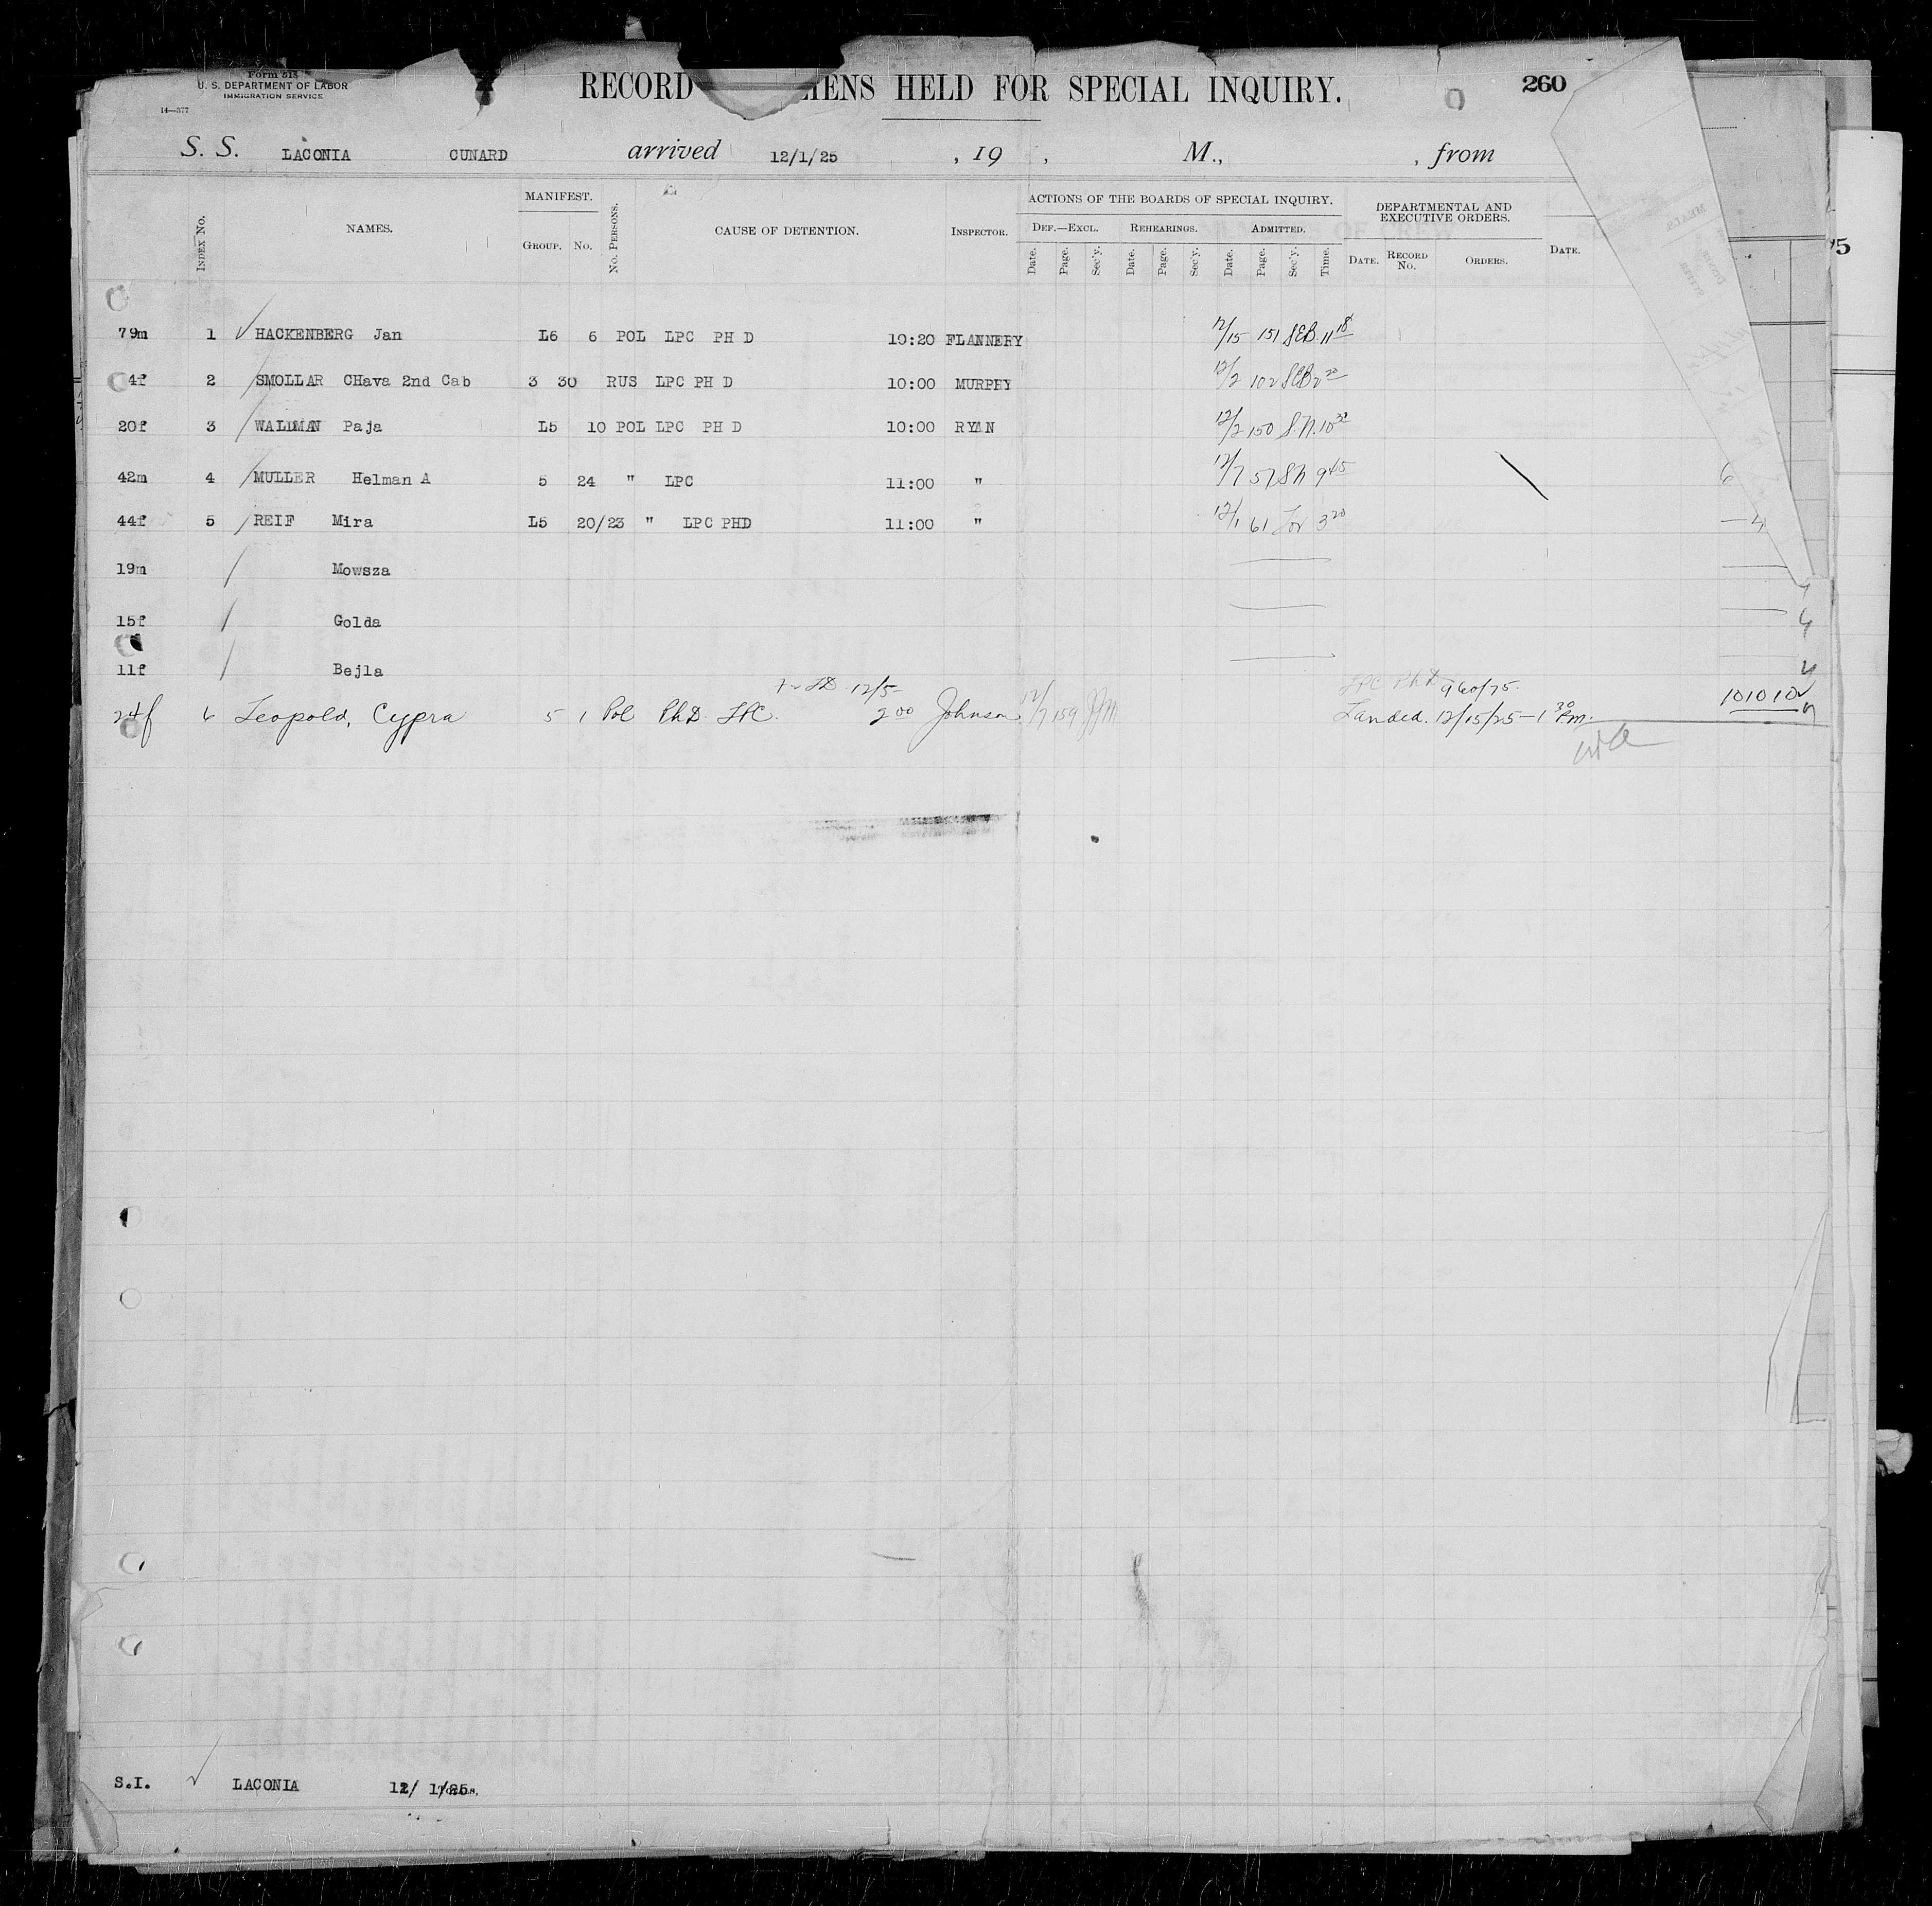 Form 518
U. S. DEPARTMENT OF LABOR
IMMIGRATION SERVICE
14—377
RECORD IENS HELD FOR SPECIAL INQUIRY.
260
S. S. LACONIA CUNARD arrived 12/1/25 , 19 , M., , from
INDEX No. NAMES. MANIFEST. GROUP. No. No. PERSONS. CAUSE OF DETENTION. INSPECTOR. ACTIONS OF THE BOARDS OF SPECIAL INQUIRY. DEPARTMENTAL AND EXECUTIVE ORDERS.
DEF.—EXCL. REHEARINGS. ADMITTED.
Date. Page. Sec'y. Date. Page. Sec'y. Date. Page. Sec'y. Time. DATE. RECORD No. ORDERS. DATE.
79m 1 HACKENBERG Jan L6 6 POL LPC PH D 10:20 FLANNERY 12/15 151 SEB 11 18
4f 2 SMOLLAR CHava 2nd Cab 3 30 RUS LPC PH D 10:00 MURPHY 12/2 102 SEB 2 20
20f 3 WALDMAN Paja L5 10 POL LPC PH D 10:00 RYAN 12/2 150 S.N. 10 32
42m 4 MULLER Helman A 5 24 " LPC 11:00 " 12/7 57 SN 9 45 6
44f 5 REIF Mira L5 20/23 " LPC PHD 11:00 " 12/1 61 3 20
19m Mowsza
15f Golda
11f Bejla
12/5 LPC PhD 960/75. 10 10 10
24f 6 Leopold, Cypra 5 1 Pol PhD. LPC. 2 00 Johnson 12/7 159 Landed. 12/15/25—1 30 P.m.
S.I. LACONIA 12/ 1/25